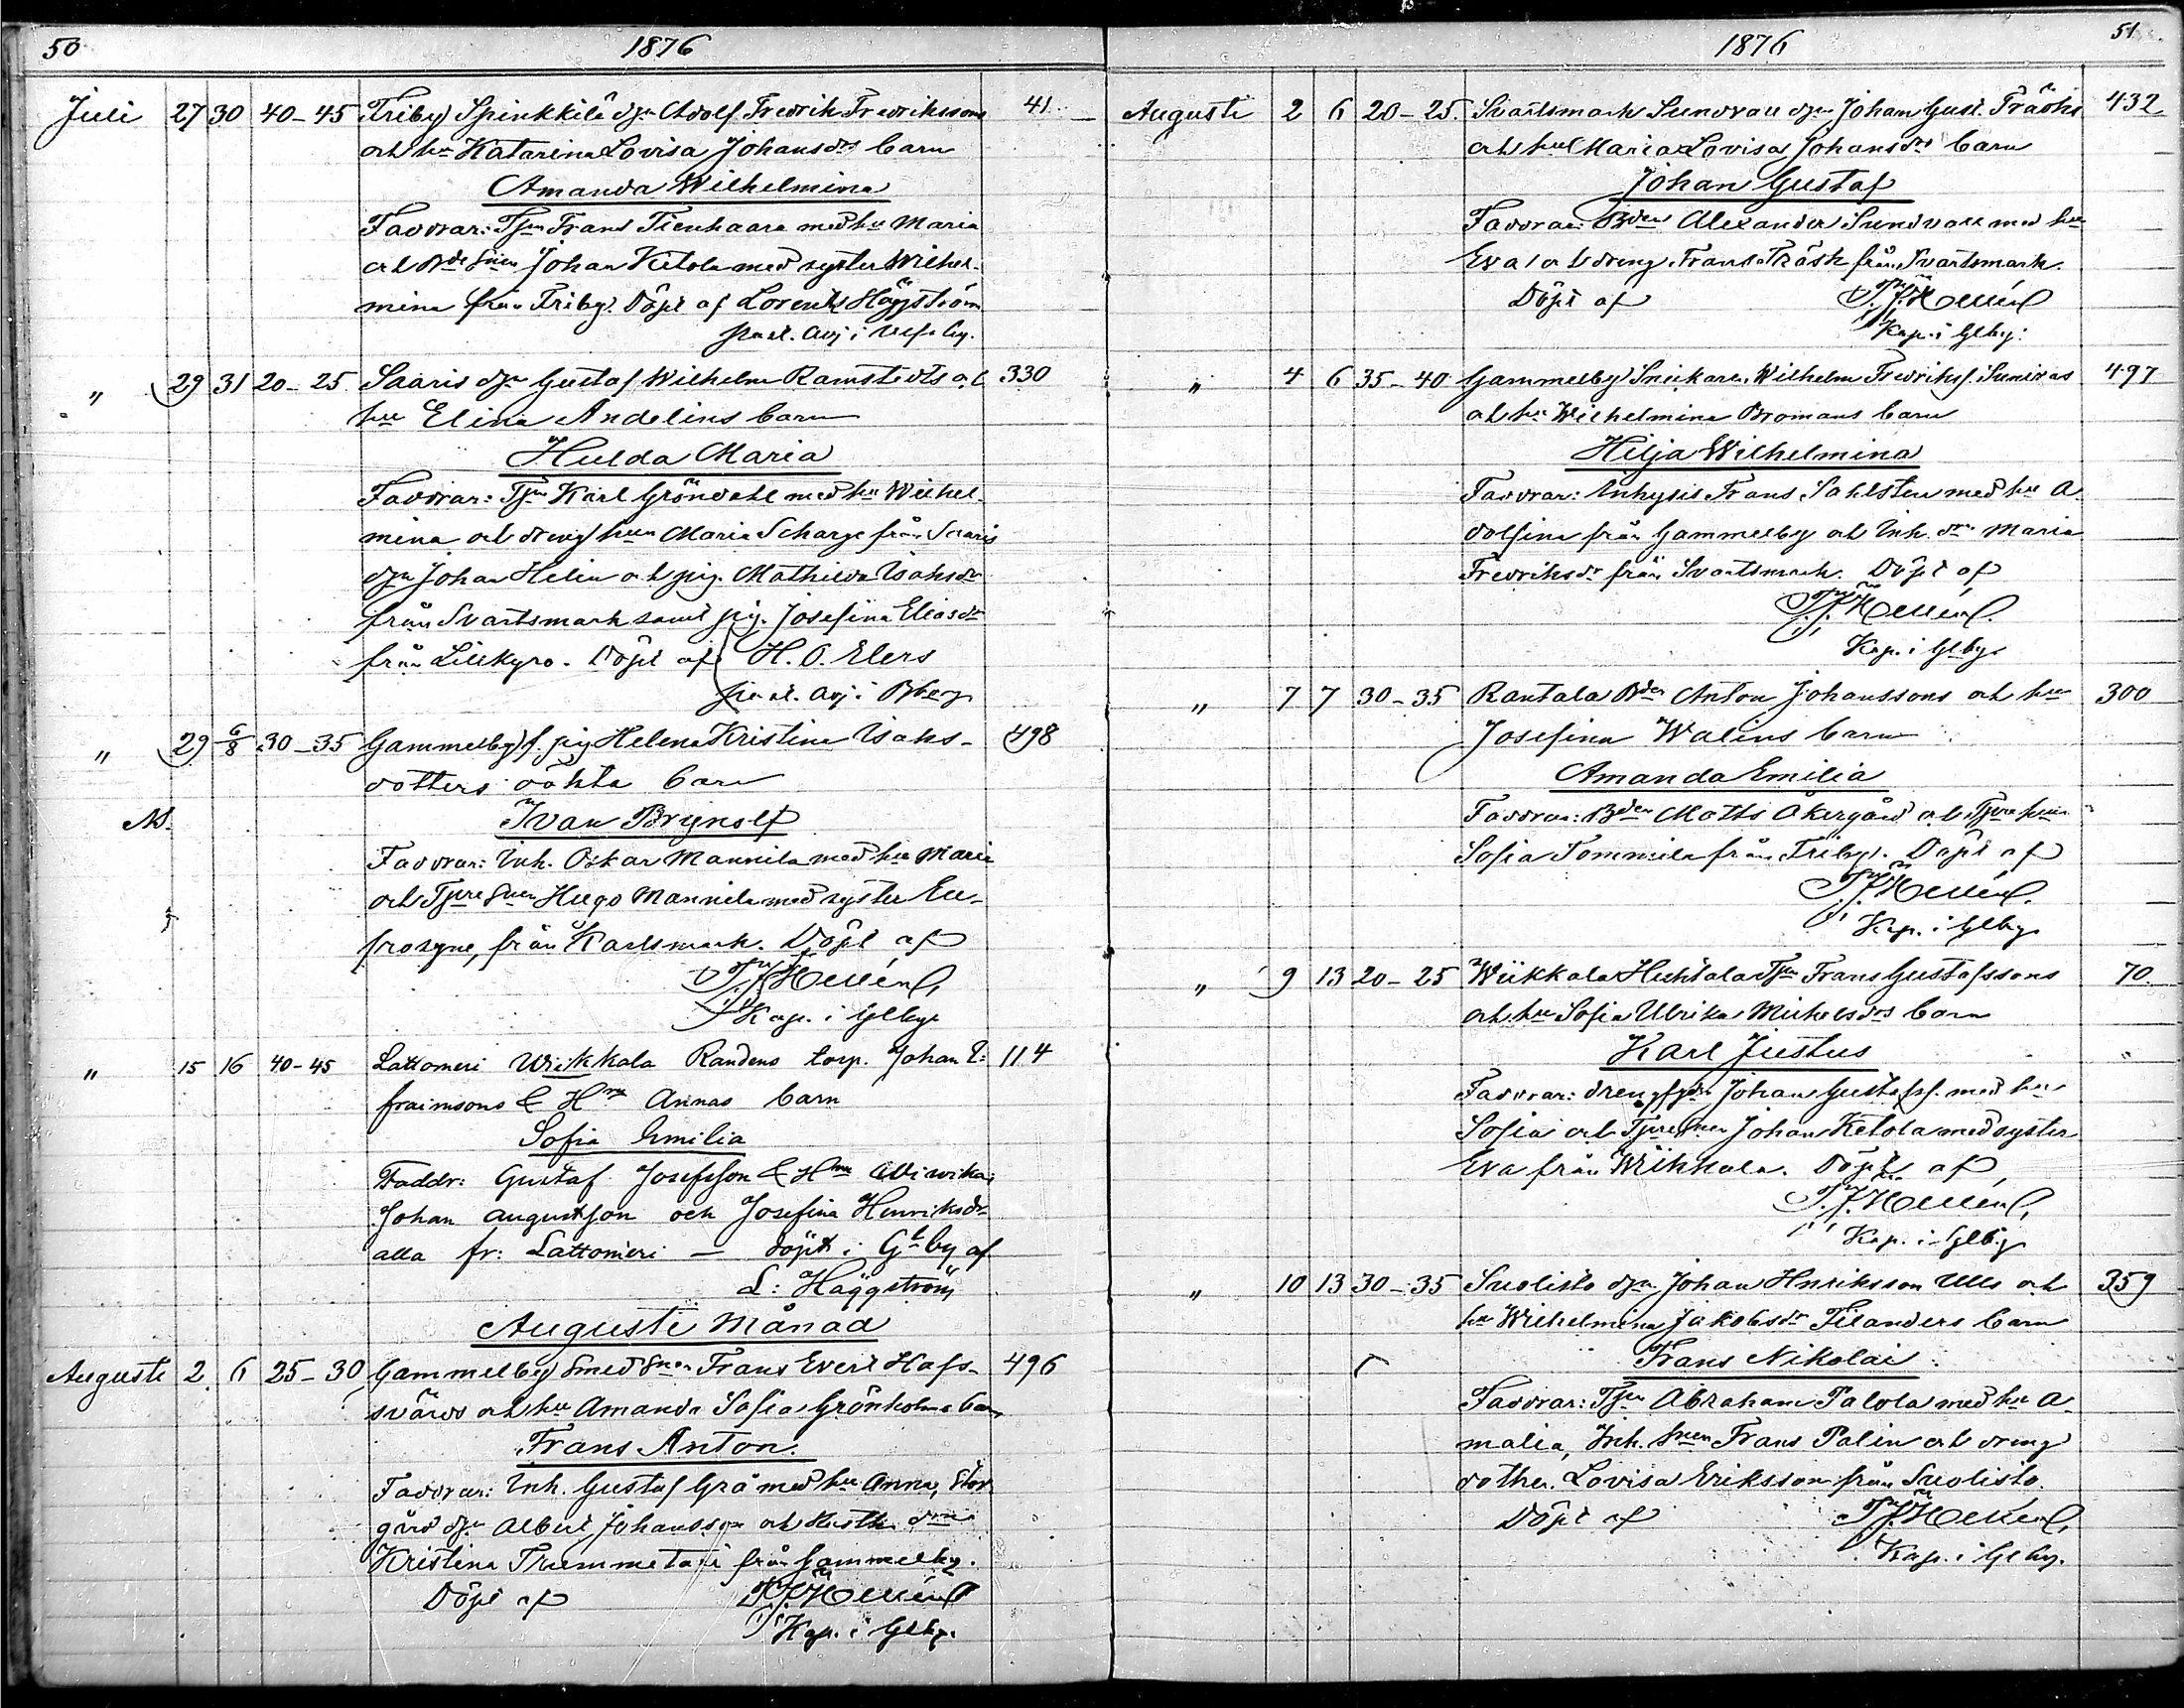 50
1876
Juli 27 30 40-45 Friby Spinkkilä Adolf Fredrik Fredrikssons 41
och hu Katarina Lovisa Johansdrs barn
Amanda Wilhelmina
Faddrar: Frans Tienhaara med hu Maria
och Johan Ketola med syster Wilhel-
mina från Friby. Döpt af Lorentz Häggström
past. adj i Ulfsby.
" 29 31 20-25 Saaris Gustaf Wilhelm Ramstedts och 330
hu Elina Andelins barn
Hulda Maria
Faddrar: Karl Gröndahl med hu Wilhel-
mina och dreng Maria Scharge från Saaris
Johan Helin och pig. Mathilda Isaksdr
från Svartsmark samt pig. Josefina Eliasdr
från Lillkyro. Döpt af H. O. Elers
past. adj i
" 29 6/8 30-35 Gammelby f. pig Helena Kristina Isaks- 498
dotters oäkta barn
Ivan Brynolf
Faddrar: Inh. Oskar Mannila med hu Maria
och Hugo Mannila med syster Eu-
frosyne, från Karlsmark. Döpt af
Hellén
Kap. i Glby
" 15 16 40-45 Lattomeri Wiikkala Randens torp. Johan E: 114
fraimsons & Hru Annas barn
Sofia Emilia
Faddr: Gustaf Josefsson & Hru
Johan Augustson och Josefina Henriksdr
alla fr: Lattomeri — döpt i Glby af
L: Häggström
Augusti Månad
Augusti 2 6 25-30 Gammelby Smed Frans Evert Hafs- 496
svärds och hu Amanda Sofia Grönholms barn
Frans Anton.
Faddrar: Inh. Gustaf Grå med hu Anna,
Albert Johansson och
Kristina Trummetari från Gammelby.
Döpt af Hellén
Kap. i Glby.
51
1876
Augusti 2 6 20-25 Svartsmark Sundvall Johan Gust. Träsks 432
och hu Maria Lovisa Johansdrs barn
Johan Gustaf
Faddrar: Alexander Sundvall med hu
Eva och dreng Frans Träsk från Svartsmark.
Döpt af Hellén
Kap. i Glby.
" 4 6 35-40 Gammelby Snickare Wilhelm Fredriksf. 497
och hu Wilhelmina Bromans barn
Hilja Wilhelmina
Faddrar: Inhysis Frans Sahlsten med hu A-
dolfina från Gammelby och Inh. Maria
Fredriksdr från Svartsmark. Döpt af
Hellén
Kap. i Glby
" 7 7 30-35 Rantala Anton Johanssons och hu 300
Josefina Walins barn
Amanda Emilia
Faddrar: Matts Åkergård och
Sofia Tommila från Friby. Döpt af
Hellén
Kap. i Glby
" 9 13 20-25 Wiikkala Huhtala Frans Gustafssons 70.
och hu Sofia Ulrika Mickelsdrs barn
Karl Justus
Faddrar: Johan Gustafsf. med hu
Sofia och Johan Ketola med syster
Eva från Wiikkala. Döpt af
Hellén
Kap. i Glby
" 10 13 30-35 Suolisto Johan Hnriksson Ulls och 359
hu Wilhelmina Jakobsdr Filanders barn
Frans Nikolai
Faddrar: Abraham Palola med hu A-
malia, Inh. Frans Palin och dreng
dother. Lovisa Eriksson från Suolisto.
Döpt af Hellén
Kap. i Glby.